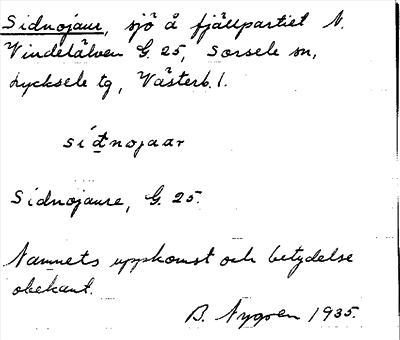 Sidnojaur, sjö å fjällpartiet N.
Vindelälven G. 25, Sorsele sn,
Lycksele tg, Västerb. l.
sìđnojaar
Sidnojaure, G. 25.
Namnets uppkomst och betydelse
obekant.
B. Nygren 1935.